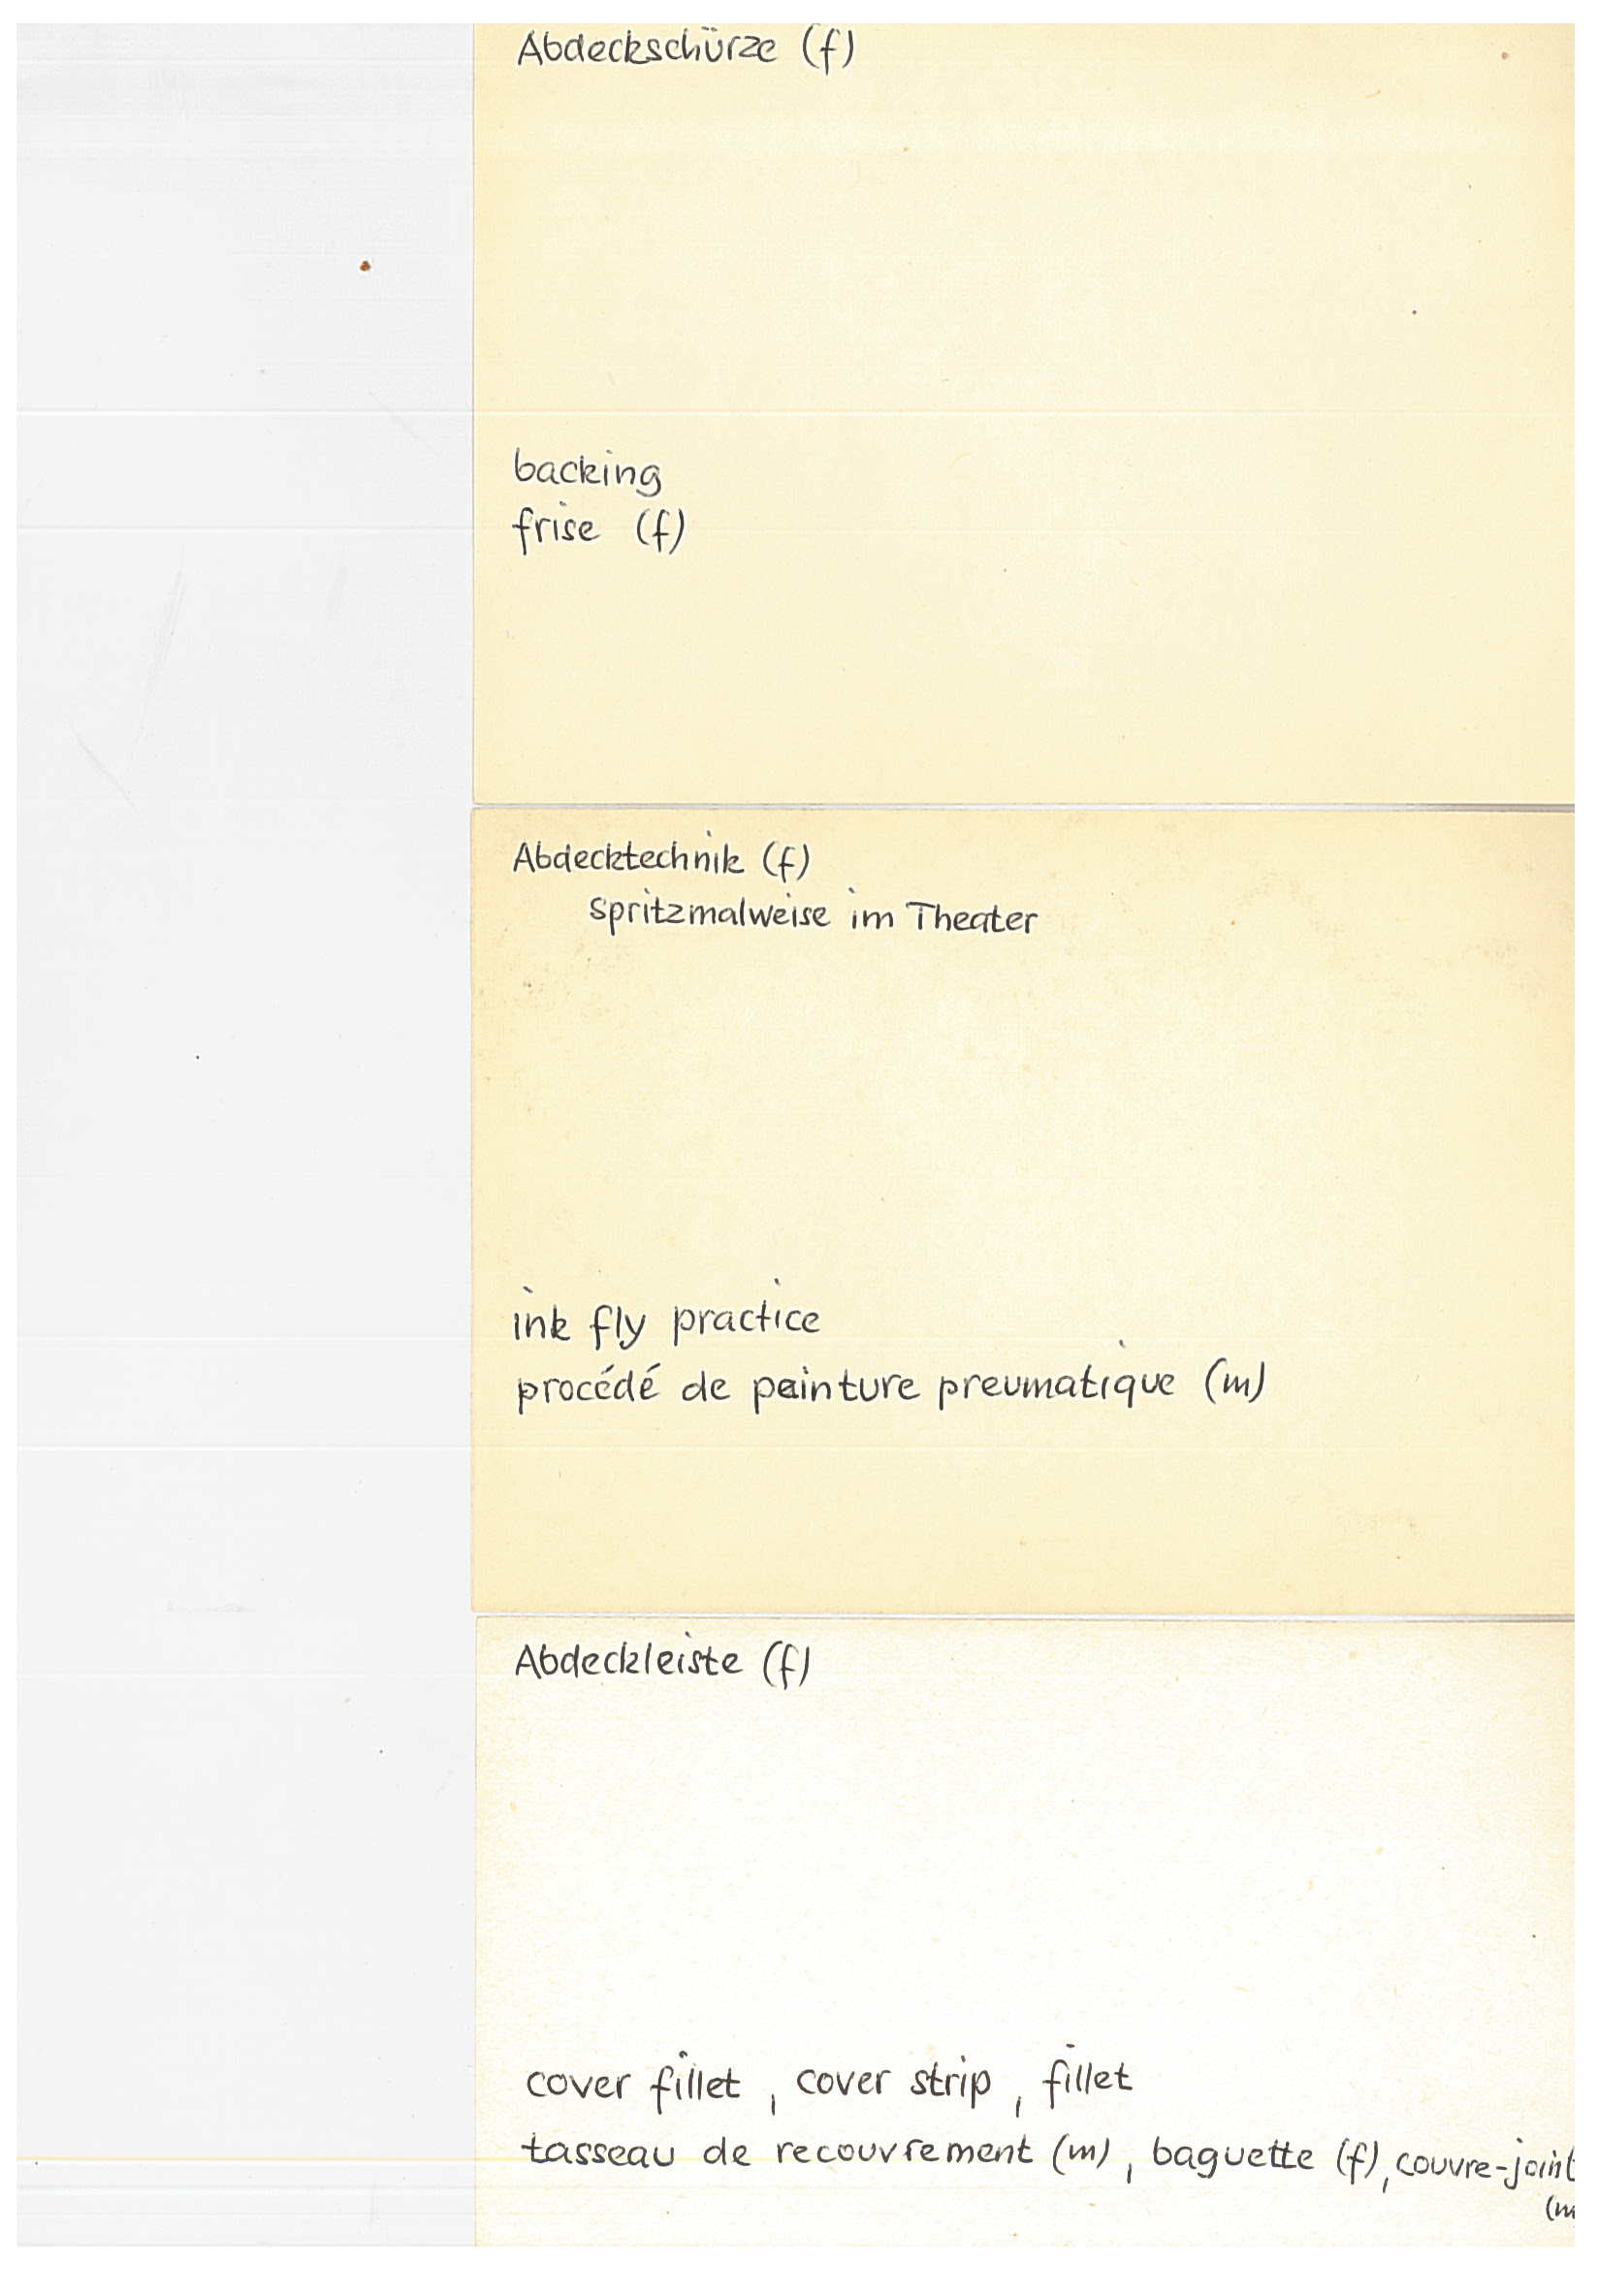 Abdeckschürze (f)
backing
frise (f)
Abdecktechnik (f)
Spritzmalweise im Theater
ink fly practice
procédé de peinture preumatique (m)
Abdeckleiste (f)
cover fillet, cover strip, fillet
tasseau de recouvrement (m), baguette (f), couvre-joint
(m